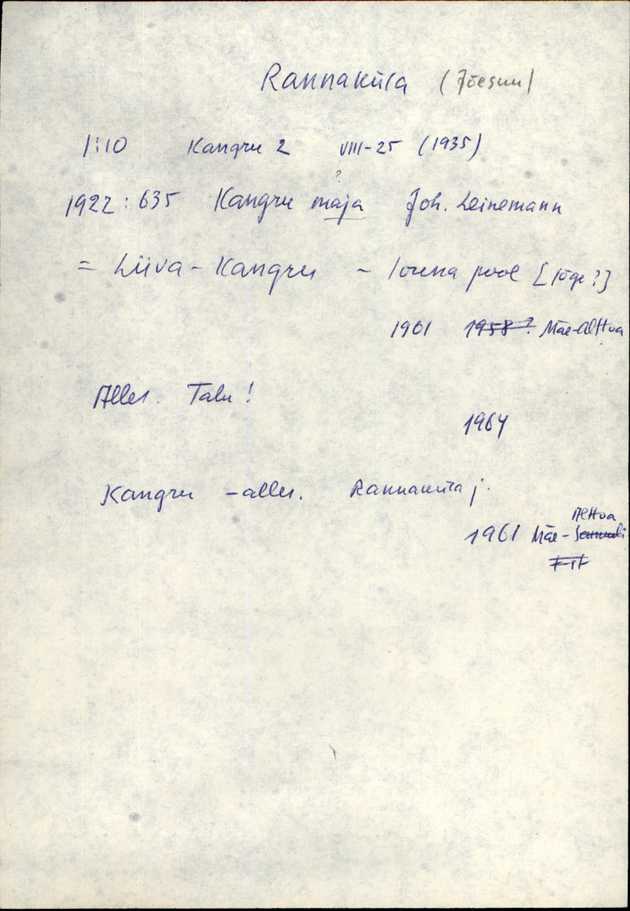 Rannaküla (Jõesuu)
1:10 Kangru 2 VIII-25 (1935)
?
1922: 635 Kangru maja Joh. Leinemann
= Liiva-Kangru - lõuna pool [jõge?]
1961 1958? Mäe-Alttoa
Alles. Talu!
1964
Kangru - alles. Rannaküla j.
Alttoa
1961 Mäe-